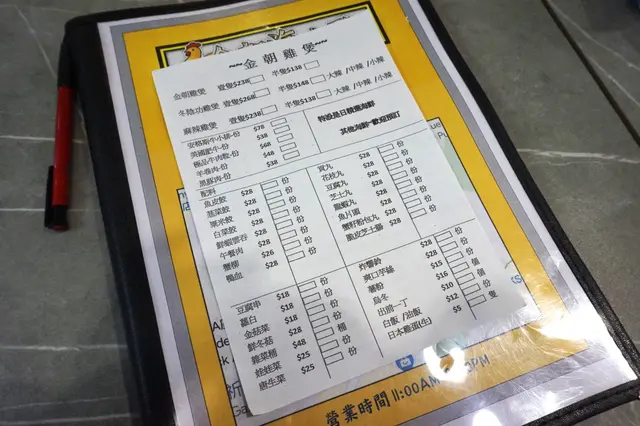 金朝雞煲
金朝雞煲 壹隻$238 半隻$138 大辣 /中辣 /小辣
冬陰功雞煲 壹隻$268 半隻$148 大辣 /中辣 /小辣
麻辣雞煲 壹隻$238 半隻$138 大辣 /中辣 /小辣
安格斯牛小排-份 $78
美國肥牛-份 $38
極品牛肉粒-份 $68
羊卷肉-份 $48
黑豚肉-份 $38
特設是日精選海鮮
其他海鮮~歡迎預訂
配料
魚皮餃 $28 份
韮菜餃 $28 份
粟米餃 $28 份
白菜餃 $28 份
鮮蝦雲吞 $28 份
午餐肉 $28 份
蟹柳 $26 份
鴨血 $28 份
貢丸 $28 份
花枝丸 $28 份
豆腐丸 $28 份
芝士丸 $28 份
龍蝦丸 $28 份
魚片頭 $28 份
蟹籽粉包丸 $28 份
脆皮芝士腸 $28 份
豆腐串 $18 份
蘿白 $18 份
金菇菜 $18 份
鮮冬菇 $28 份
雜菜桶 $48 桶
娃娃菜 $25 份
唐生菜 $25 份
炸響鈴 $28 份
爽口芋絲 $28 份
薯粉 $15 份
烏冬 $16 份
出前一丁 $10 個
白飯 /油飯 $12 個
日本雞蛋(生) $5 隻
營業時間 11:00AM
PM